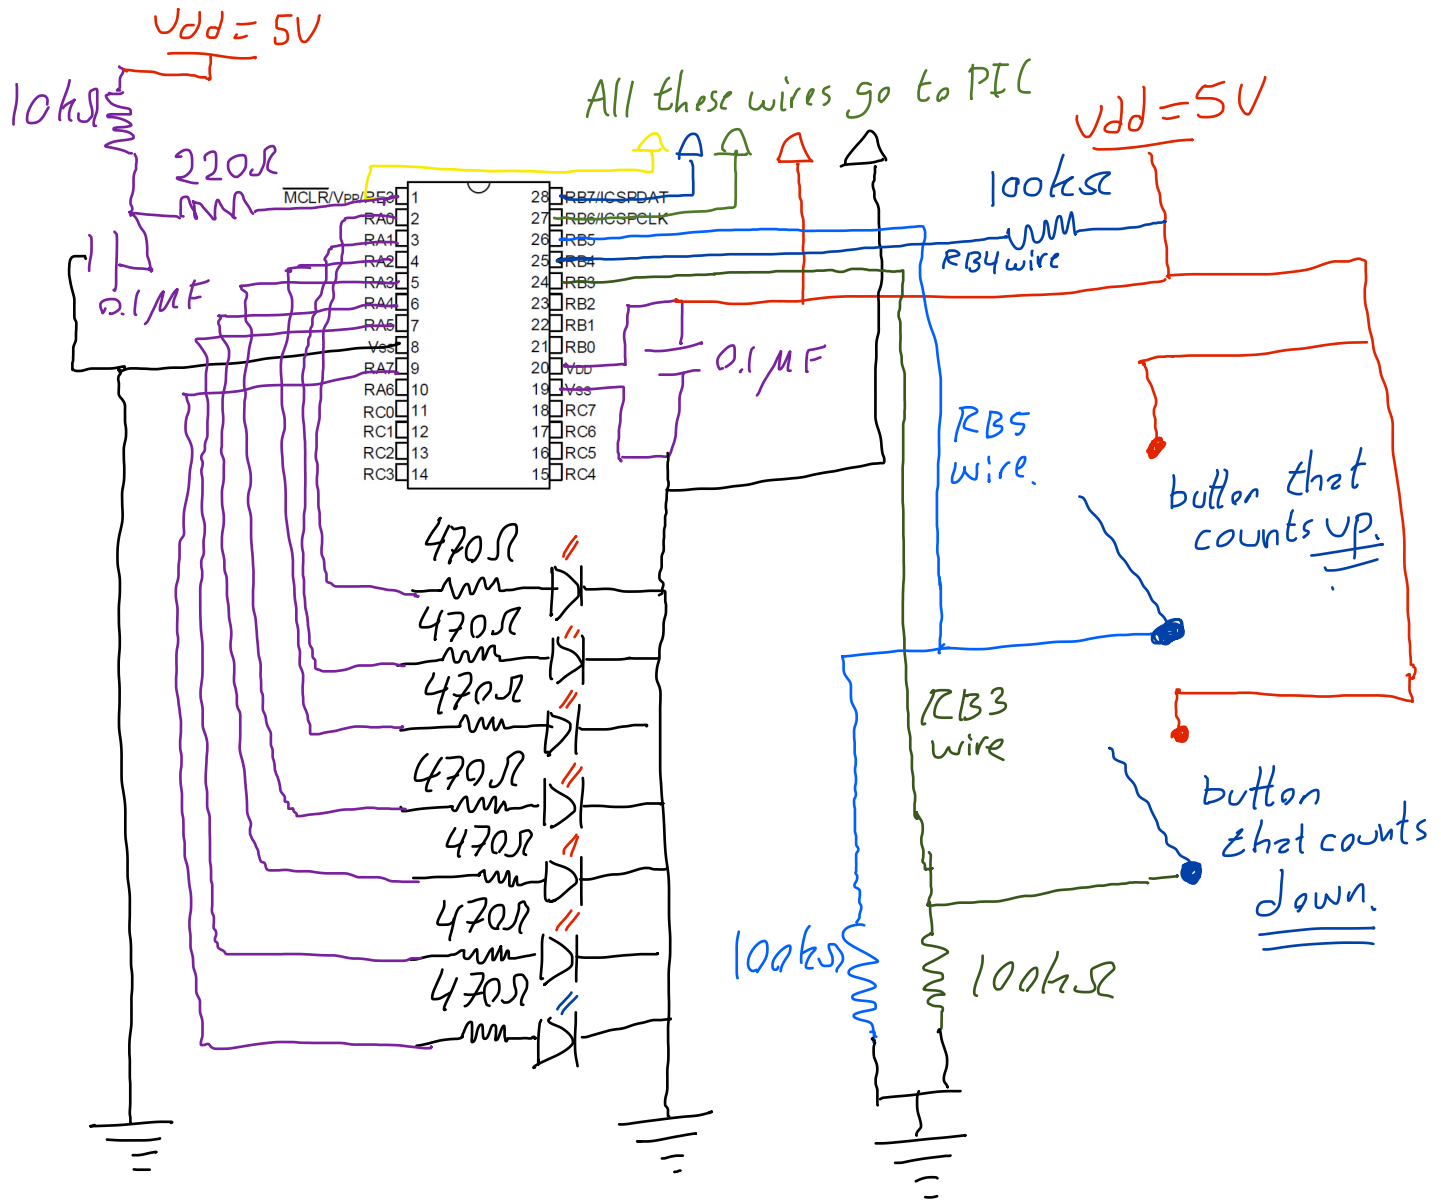 Vdd = 5V
10kΩ
220Ω
0.1μF
All these wires go to PIC
Vdd = 5V
100kΩ
RB4 wire
MCLR/VPP/RE3 1
RA0 2
RA1 3
RA2 4
RA3 5
RA4 6
RA5 7
Vss 8
RA7 9
RA6 10
RC0 11
RC1 12
RC2 13
RC3 14
28 RB7/ICSPDAT
27 RB6/ICSPCLK
26 RB5
25 RB4
24 RB3
23 RB2
22 RB1
21 RB0
20 VDD
19 Vss
18 RC7
17 RC6
16 RC5
15 RC4
0.1μF
RB5
wire.
button that
counts up.
470Ω
470Ω
470Ω
470Ω
470Ω
470Ω
470Ω
RB3
wire
button
that counts
down.
100kΩ
100kΩ